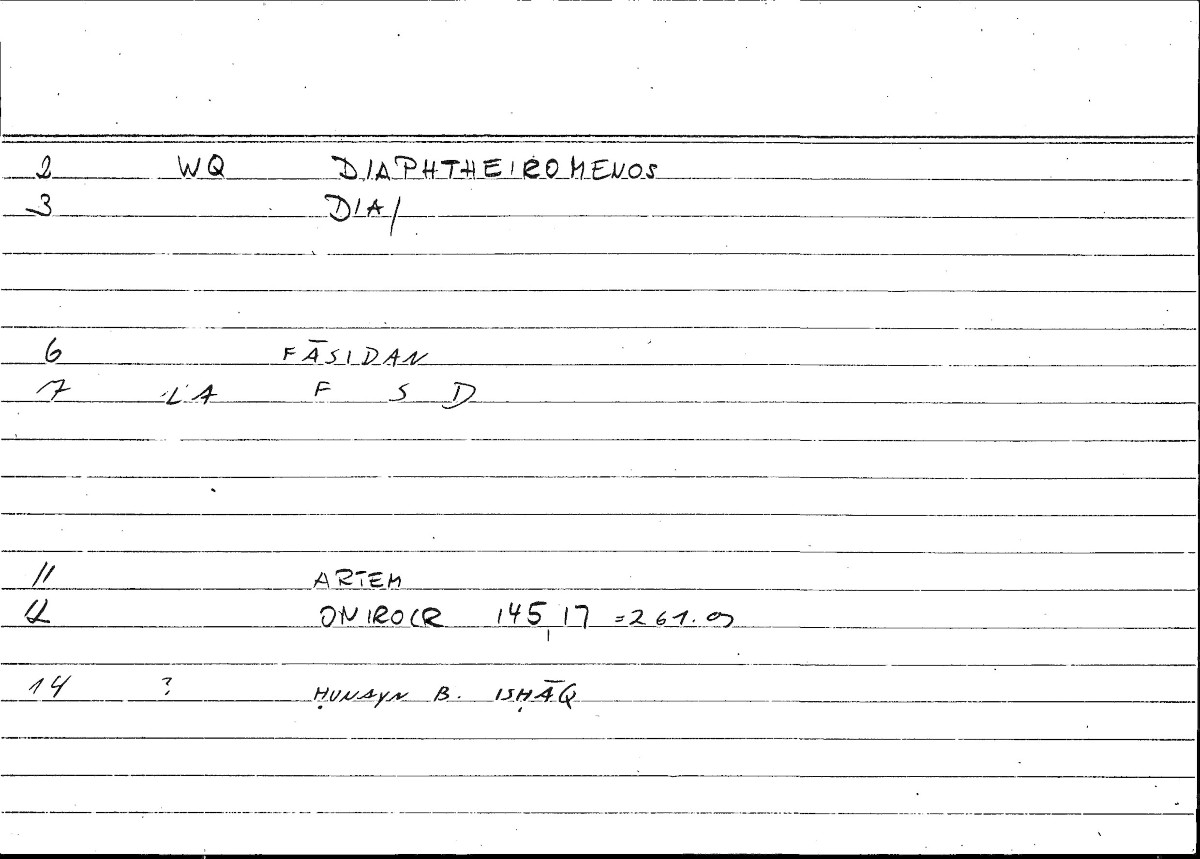 2 WQ DIAPHTHEIROMENOS
3 DIA/
6 FĀSIDAN
7 LA F S D
11 ARTEM
12 ONIROCR 145,17 =261.9
14 ? ḤUNAYN B. ISḤĀQ